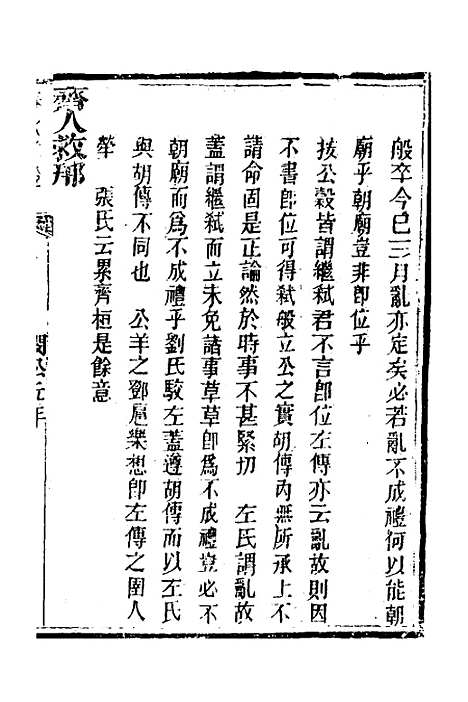 般卒今已三月亂亦定矣必若亂不成禮何以能朝
廟乎朝廟豈非卽位乎
按公穀皆謂繼弒君不言卽位左傳亦云亂故則因
不書卽位可得弒般立公之實胡傳內無所承上不
請命固是正論然於時事不甚緊切　左氏謂亂故
蓋謂繼弒而立未免諸事草草卽爲不成禮豈必不
朝廟而爲不成禮乎劉氏駁左蓋遵胡傳而以左氏
與胡傳不同也　公羊之鄧扈樂想卽左傳之圉人
犖　張氏云累齊桓是餘意
齊人救邢
閔公元年